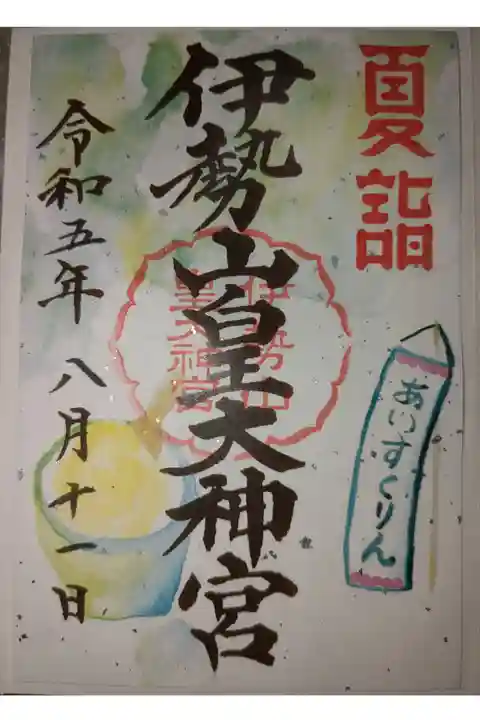 夏詣
あいすくりん
伊勢山皇大神宮
伊勢山
皇大神宮
令和五年八月十一日